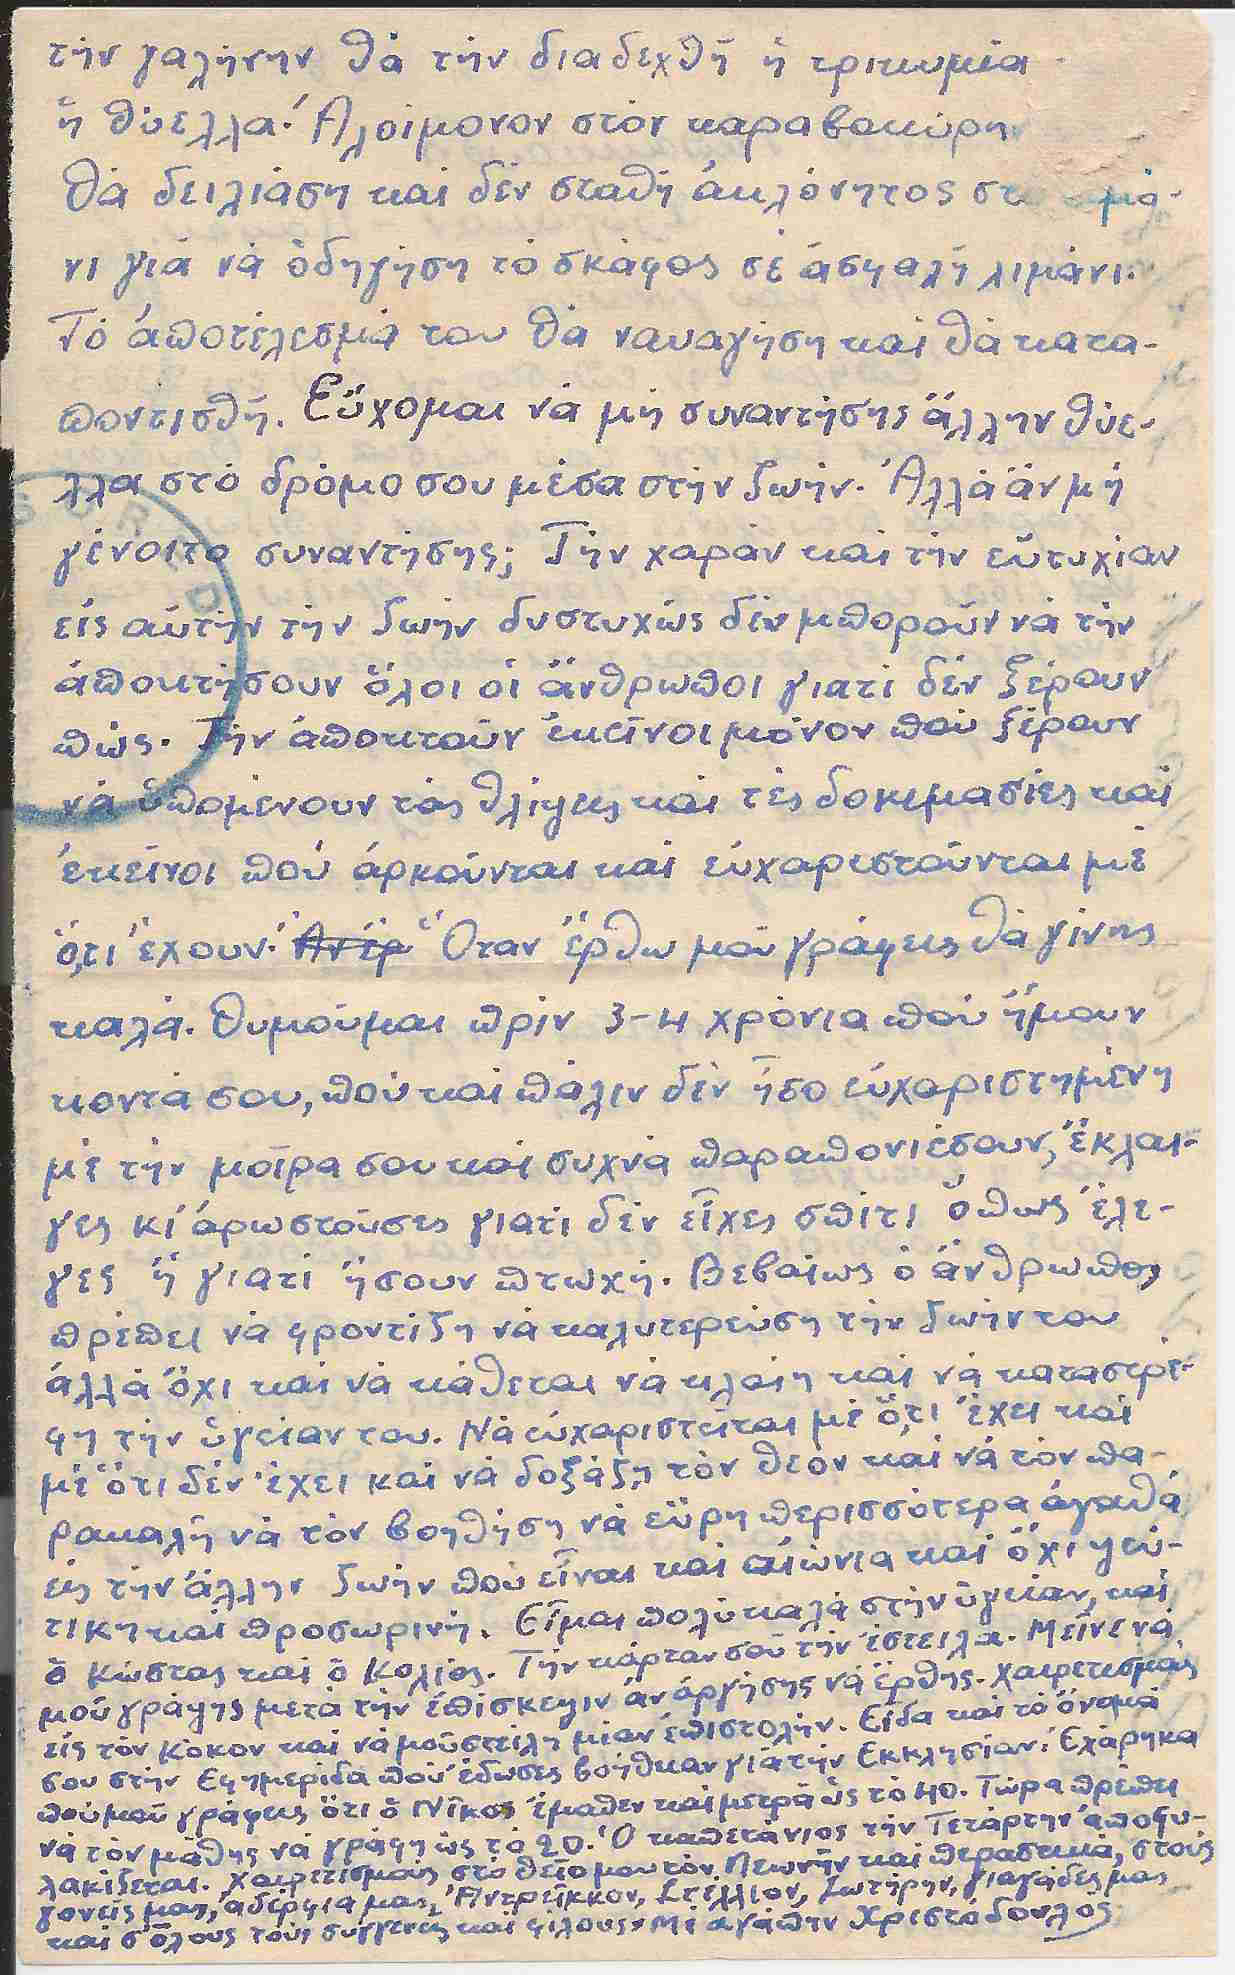 τὴν γαλήνην θὰ τὴν διαδεχθῆ ἡ τρικυμία
ἢ θύελλα. Ἀλοίμονον στὸν καραβοκύρην
θὰ δειλιάση καὶ δὲν σταθῆ ἀκλόνητος
νι γιὰ νὰ ὁδηγήση τὸ σκάφος σὲ ἀσφαλῆ λιμάνι.
Τὸ ἀποτέλεσμά του θὰ ναυαγήση καὶ θὰ κατα-
ποντισθῆ. Εὔχομαι νὰ μὴ συναντήσης ἄλλην θύε-
λλα στὸ δρόμο σου μέσα στὴν ζωήν. Ἀλλὰ ἂν μὴ
γένοιτο συναντήσης; Τὴν χαρὰν καὶ τὴν εὐτυχίαν
εἰς αὐτὴν τὴν ζωὴν δυστυχῶς δὲν μποροῦν νὰ τὴν
ἀποκτήσουν ὅλοι οἱ ἄνθρωποι γιατὶ δὲν ξέρουν
πῶς. Τὴν ἀποκτοῦν ἐκεῖνοι μόνον ποὺ ξέρουν
νὰ ὑπομένουν τὰς θλίψεις καὶ τὲς δοκιμασίες καὶ
ἐκεῖνοι ποὺ ἀρκοῦνται καὶ εὐχαριστοῦνται μὲ
ὅ,τι ἔχουν. Ὅταν ἔρθω μοῦ γράφεις θὰ γίνης
καλά. Θυμοῦμαι πρὶν 3-4 χρόνια ποὺ ἤμουν
κοντά σου, ποὺ καὶ πάλιν δὲν ἦσο εὐχαριστημένη
μὲ τὴν μοῖρα σου καὶ συχνὰ παραπονιέσουν, ἔκλαι-
γες κι ἀρωστοῦσες γιατὶ δὲν εἶχες σπίτι ὅπως ἔλε-
γες ἢ γιατὶ ἤσουν πτωχή. Βεβαίως ὁ ἄνθρωπος
πρέπει νὰ φροντίζη νὰ καλυτερεύση τὴν ζωήν του
ἀλλὰ ὄχι καὶ νὰ κάθεται νὰ κλαίη καὶ νὰ καταστρέ-
φη τὴν ὑγείαν του. Νὰ εὐχαριστεῖται μὲ ὅ,τι ἔχει καὶ
μὲ ὅτι δὲν ἔχει καὶ νὰ δοξάζη τὸν θεὸν καὶ νὰ τὸν πα-
ρακαλῆ νὰ τὸν βοηθήση νὰ εὕρη περισσότερα ἀγαθὰ
εἰς τὴν ἄλλην ζωὴν ποὺ εἶναι καὶ αἰώνια καὶ ὄχι ψεύ-
τικη καὶ προσωρινή. Εἶμαι πολὺ καλὰ στὴν ὑγείαν, καὶ
ὁ Κώστας καὶ ὁ Κολιός. Τὴν κάρταν σοῦ τὴν ἔστειλα. Μεῖνε νὰ
μοῦ γράψης μετὰ τὴν ἐπίσκεψιν ἂν ἀργήσης νὰ ἔρθης. Χαιρετισμοὺς
εἰς τὸν Κόκον καὶ νὰ μοῦ στείλη μίαν ἐπιστολήν. Εἶδα καὶ τὸ ὄνομά
σου στὴν Ἐφημερίδα ποὺ ἔδωσες βοήθκαν γιὰ τὴν Ἐκκλησίαν. Ἐχάρηκα
ποὺ μοῦ γράφεις ὅτι ὁ Νῖκος ἔμαθεν καὶ μετρᾶ ὡς τὸ 40. Τώρα πρέπει
νὰ τὸν μάθης νὰ γράφη ὡς τὸ 20. Ὁ καπετάνιος τὴν Τετάρτην ἀποφυ-
λακίζεται. Χαιρετισμοὺς στὸ θεῖο μου τὸν Λεωνῆν καὶ περαστικά, στοὺς
γονεῖς μας, ἀδέρφια μας, Ἀντρεῖκκον, Στέλλιον, Σωτήρην, γιαγιάδες μας
καὶ σ' ὅλους τοὺς συγγενεῖς καὶ φίλους. Μὲ ἀγάπην Χριστόδουλος